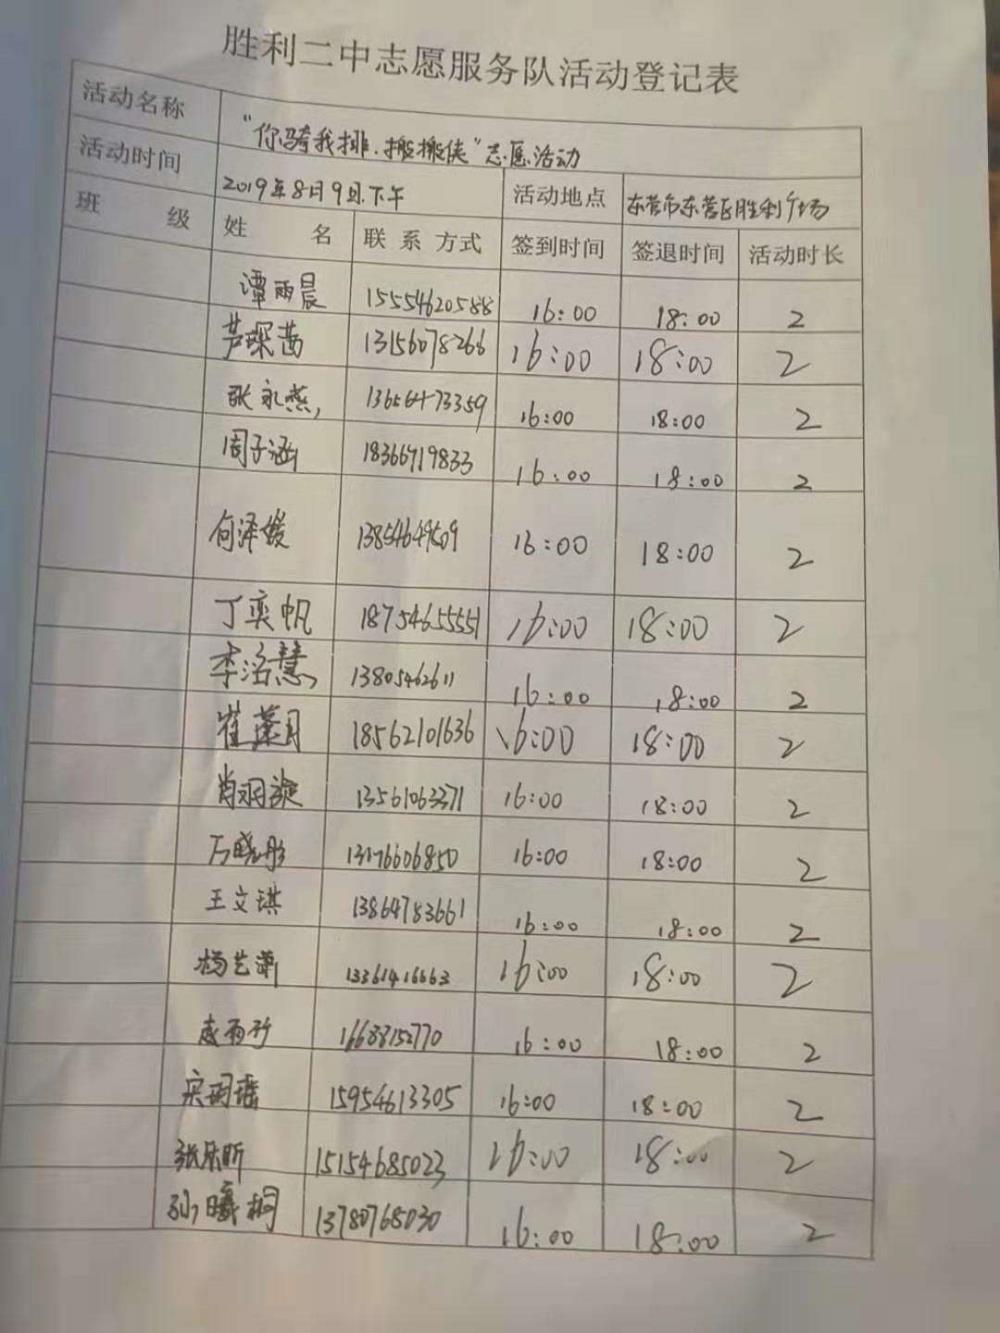 胜利二中志愿服务队活动登记表
活动名称 “你骑我排.搬搬侠”志愿活动
活动时间 2019年8月9日.下午 活动地点 东营市东营区胜利广场
班 级 姓 名 联系方式 签到时间 签退时间 活动时长
谭雨晨 15554620588 16:00 18:00 2
芦琛茜 13156078266 16:00 18:00 2
张永燕 13656473359 16:00 18:00 2
周子涵 18366719833 16:00 18:00 2
何泽媛 13854649509 16:00 18:00 2
丁奕帆 18754655551 16:00 18:00 2
李洺慧 13805462611 16:00 18:00 2
崔 18562101636 16:00 18:00 2
肖羽漩 13561063371 16:00 18:00 2
万晓彤 13176606850 16:00 18:00 2
王文琪 13864783661 16:00 18:00 2
杨艺潇 13361416663 16:00 18:00 2
16688152770 16:00 18:00 2
宋玥瑶 15954613305 16:00 18:00 2
张乐昕 15154685023 16:00 18:00 2
孙曦桐 13780768030 16:00 18:00 2